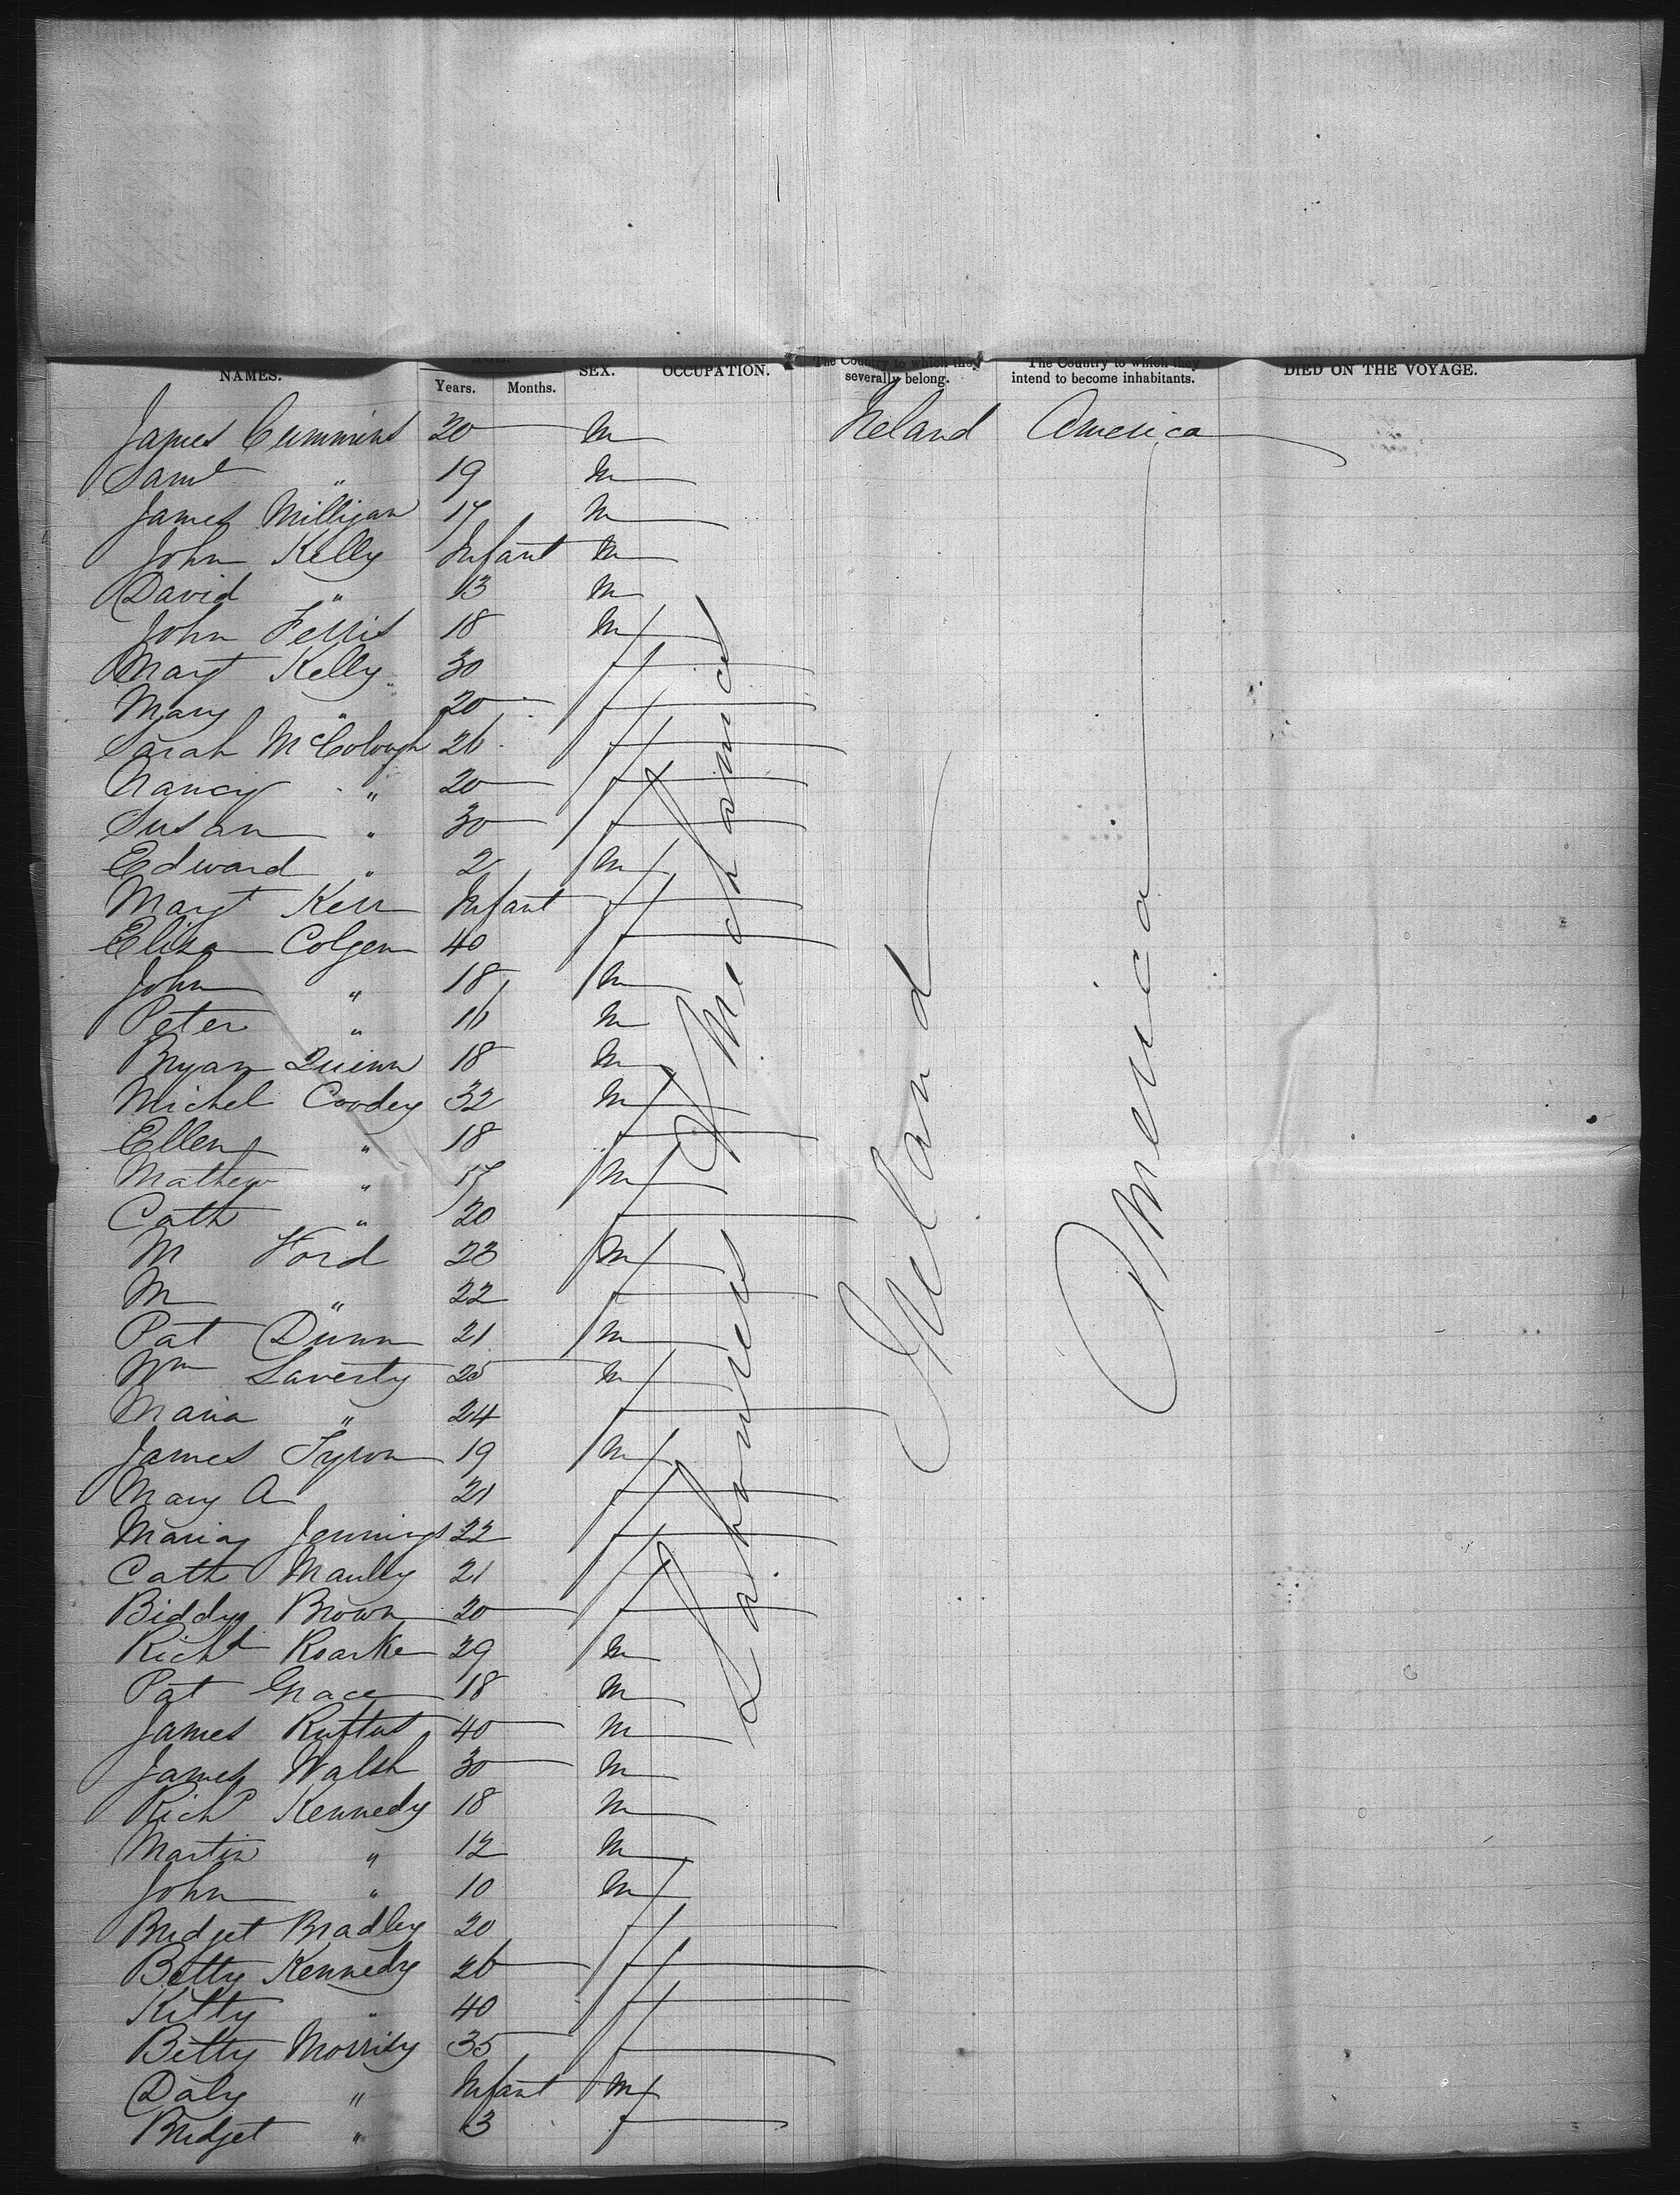 NAMES. SEX. OCCUPATION. The Country to which they severally belong. The Country to which they intend to become inhabitants. DIED ON THE VOYAGE.
Years. Months.
James Cummins 20 m Ireland America
Saml " 19 m
James Milligan 17 m
John Kelly Infant m
David " 13 m
John Ferris 18 m
Margt Kelly 30 f
Mary " 20 f
Sarah McColough 26 f
Nancy " 20 f
Susan " 30 f
Edward " 2 m
Margt Kerr Infant f
Eliza Colgen 40 f
John " 18 m
Peter " 16 m
Bryan Quinn 18 m
Michel Coodey 32 m
Ellen " 18 f
Mathew " 17 m
Cath " 20 f
M Ford 23 m
M " 22 f
Pat Dunn 21 m
Wm Laverty 25 m
Maria " 24 f
James Tyron 19 m
Mary A 21 f
Maria Jennings 22 f
Cath Manlly 21 f
Biddy Brown 20 f
Richd Roarke 29 m
Pat Grace 18 m
James Ruftus 40 m
James Walsh 30 m
Richd Kennedy 18 m
Martin " 12 m
John " 10 m
Bridget Bradley 20 f
Betty Kennedy 26 f
Kitty " 40 f
Betty Morrisy 35 f
Daly " Infant m
Bridget " 3 f
Labourers & Mechanics
Ireland
America